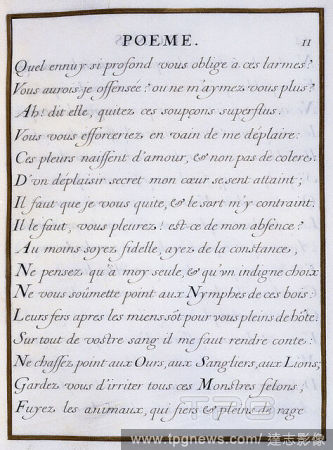 POEME. 11
Quel ennuy si profond vous oblige a ces larmes?
Vous aurois je offensee? ou ne m'aymez vous plus?
Ah! dit elle, quitez ces soupçons superflus.
Vous vous efforceriez en vain de me déplaire:
Ces pleurs naissent d'amour, & non pas de colere;
D'vn déplaisir secret mon cœur se sent attaint;
Il faut que je vous quite, & le sort m'y contraint.
Il le faut, vous pleurez! est ce de mon absence?
Au moins soyez fidelle, ayez de la constance,
Ne pensez qu'a moy seule, & qu'vn indigne choix
Ne vous soûmette point aux Nymphes de ces bois:
Leurs fers apres les miens sôt pour vous pleins de hôte.
Sur tout de vostre sang il me faut rendre conte:
Ne chassez point aux Ours, aux Sangliers, aux Lions;
Gardez vous d'irriter tous ces Monstres felons;
Fuyez les animaux, qui fiers & pleins de rage
TPG
www.tpgnews.com/ 達志影像